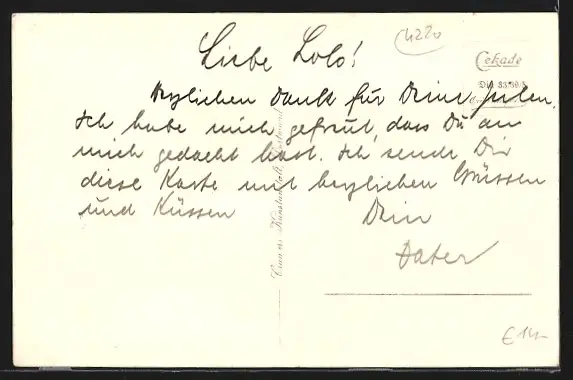 4220
Liebe Lolo!
Cekade
Herzlichen Dank für Deine
Ich habe mich gefreut, dass Du an
mich gedacht hast. Ich sende Dir
diese Karte mit herzlichen Grüssen
und Küssen Dein
Vater
€14.-